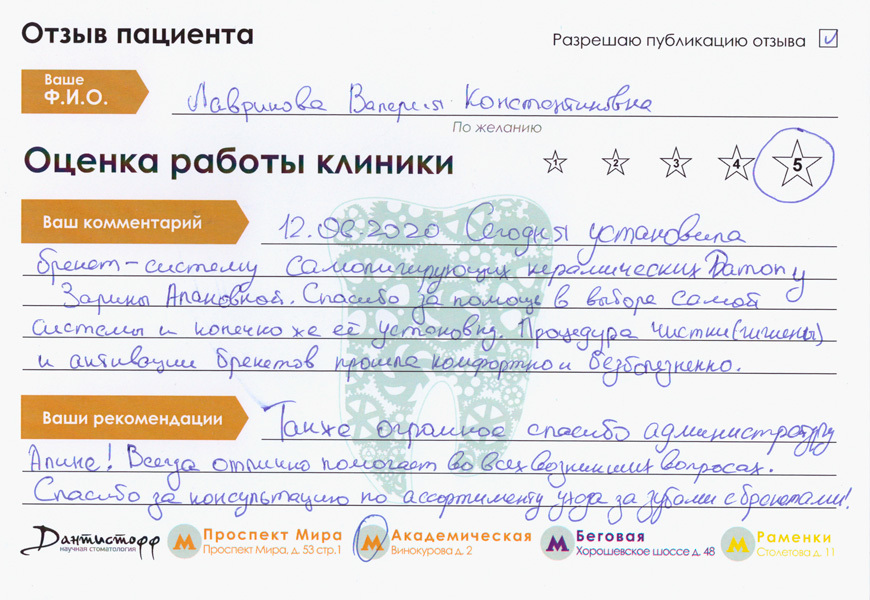 Отзыв пациента
Разрешаю публикацию отзыва
Ваше
Ф.И.О.
Лаврикова Валерия Константиновна
По желанию
Оценка работы клиники
1 2 3 4 5
Ваш комментарий
12.08.2020 Сегодня установила
брекет-систему самолигирующих керамических Damon у
Зарины Алановной. Спасибо за помощь в выборе самой
системы и конечно же её установку. Процедура чистки (гигиены)
и активации брекетов прошла комфортно и безболезненно.
Ваши рекомендации
Также огромное спасибо администратору
Алине! Всегда отлично помогает во всех возникших вопросах.
Спасибо за консультацию по ассортименту ухода за зубами с брекетами!
Дантистофф
научная стоматология
М Проспект Мира
Проспект Мира, д. 53 стр.1
М Академическая
Винокурова д. 2
М Беговая
Хорошевское шоссе д. 48
М Раменки
Столетова д. 11